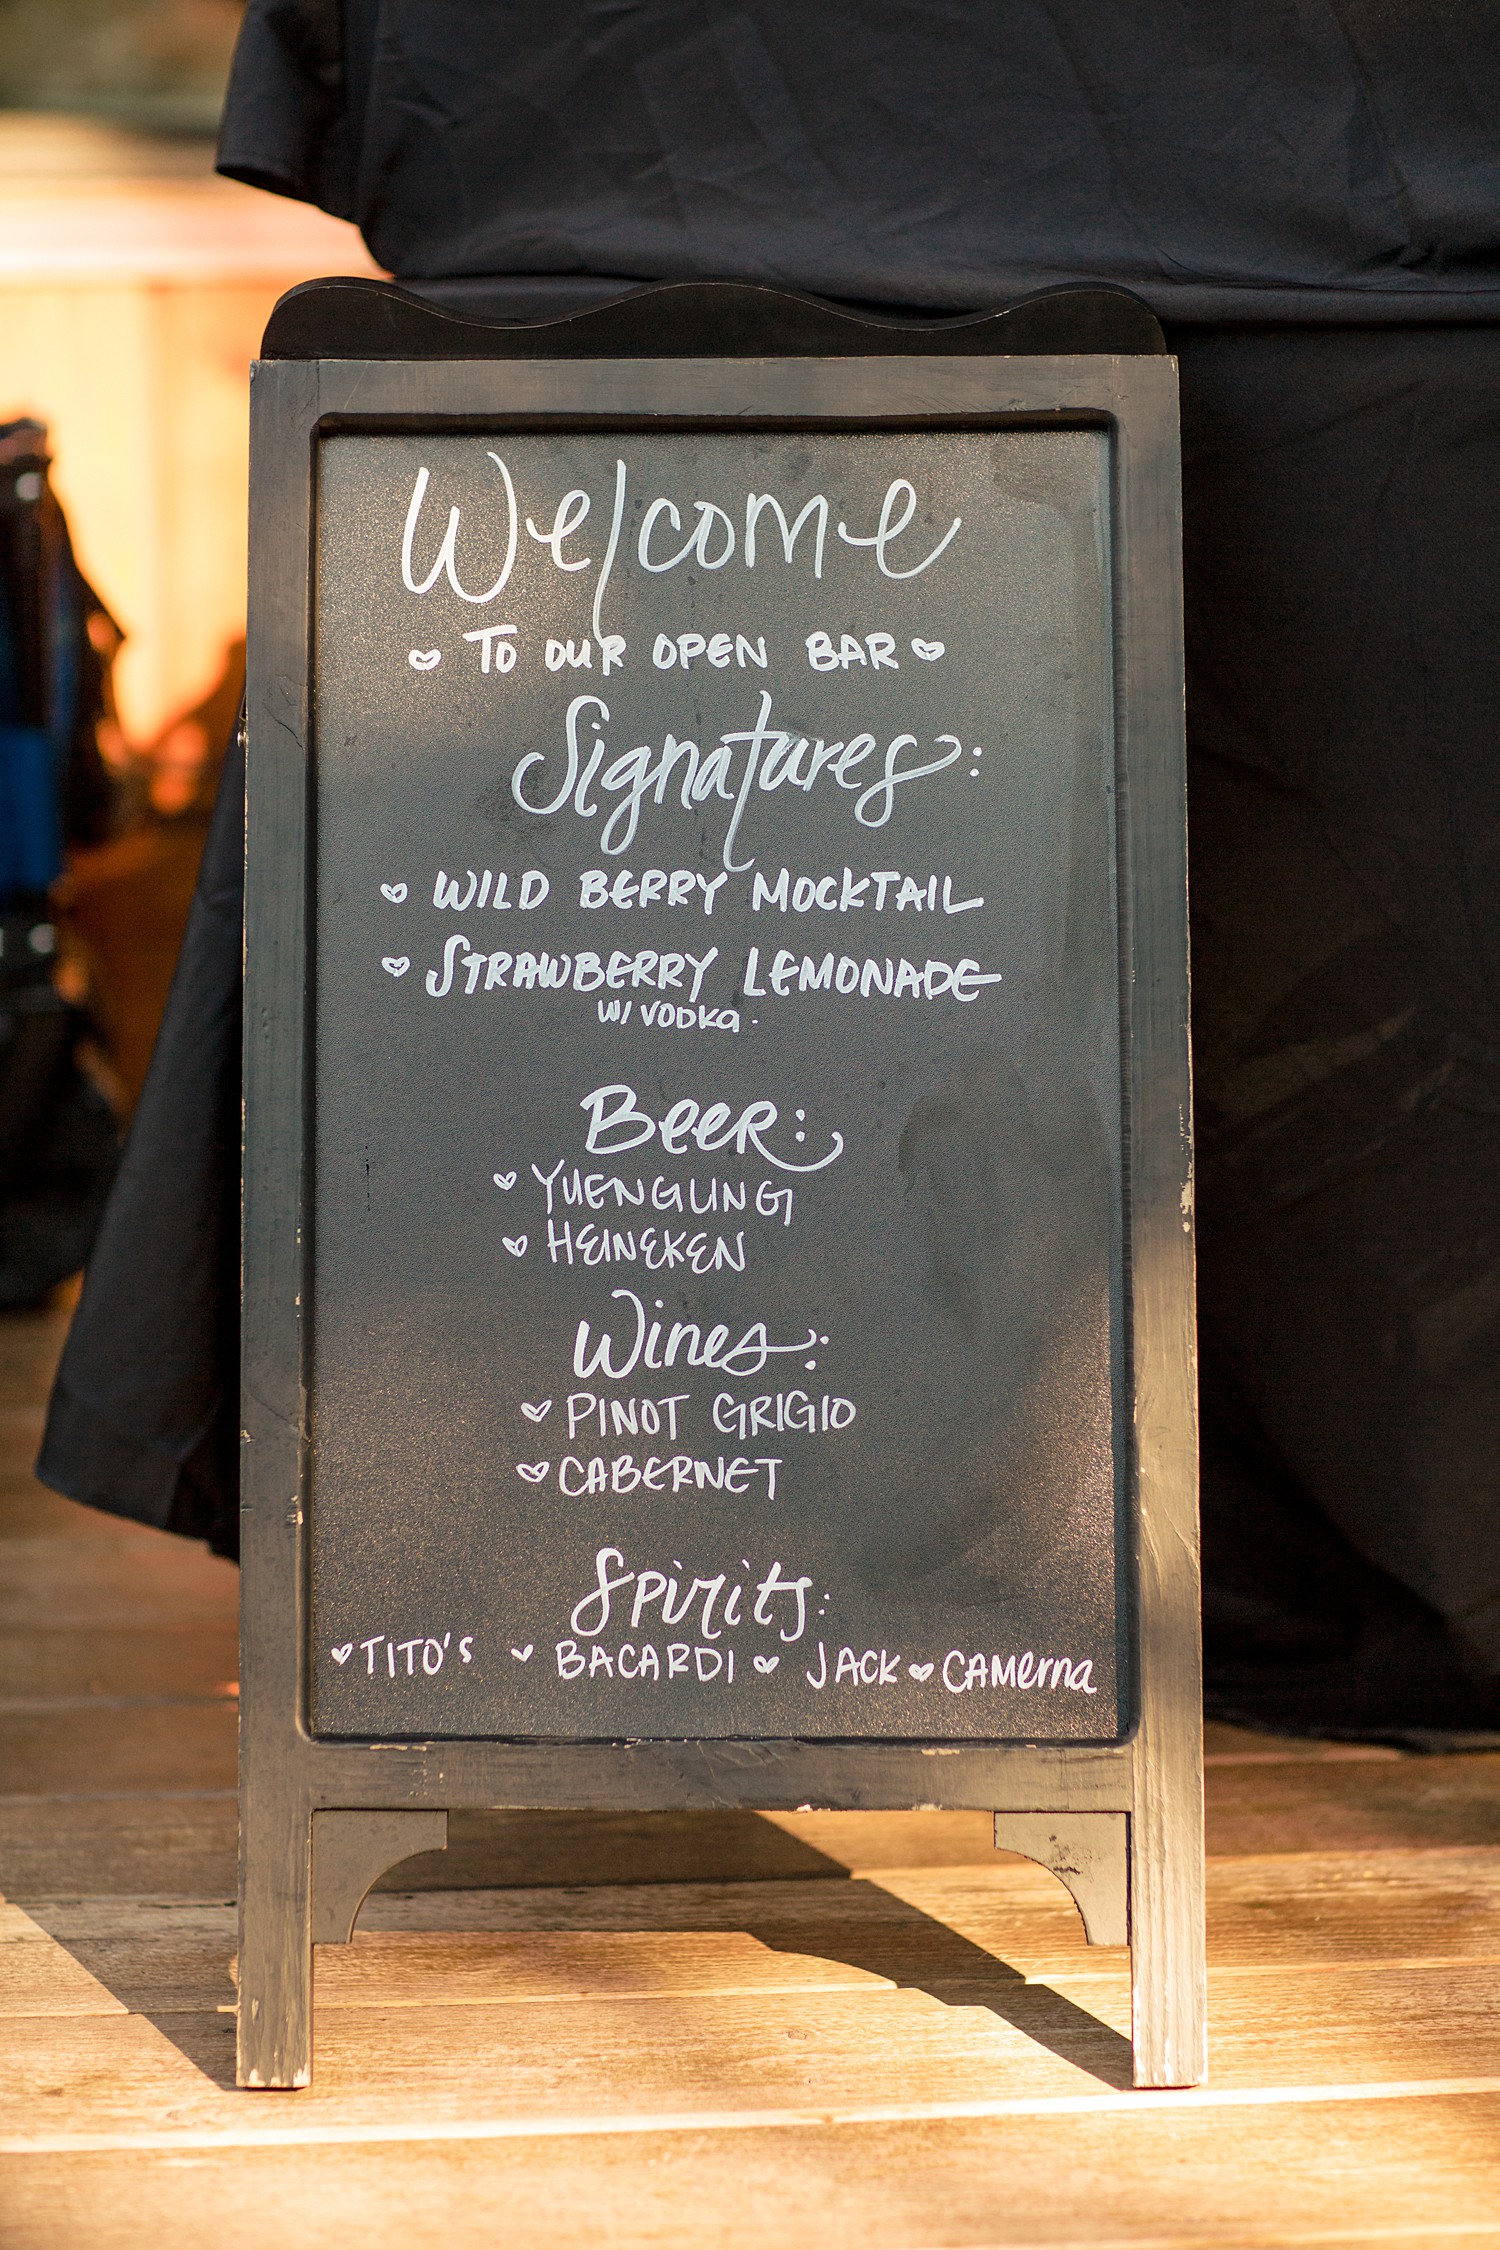 Welcome
TO OUR OPEN BAR
Signatures:
WILD BERRY MOCKTAIL
STRAWBERRY LEMONADE
W/ VODKA.
Beer:
YUENGLING
HEINEKEN
Wines:
PINOT GRIGIO
CABERNET
Spirits:
TITO'S BACARDI JACK CAMERNA